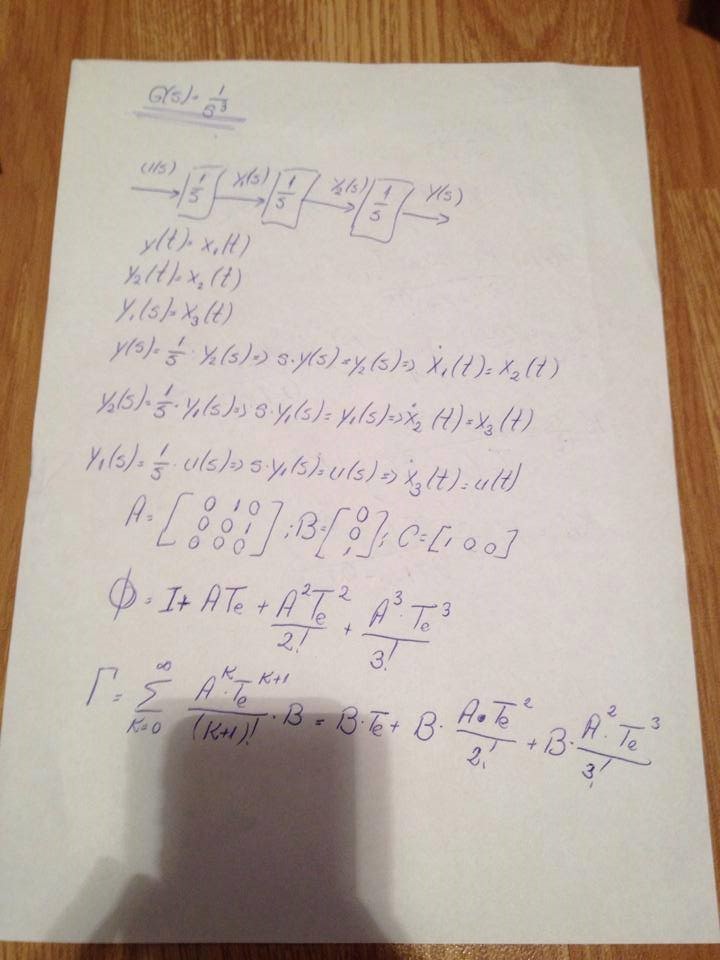 G(s)=1/s³
U(s) 1/s Y₁(s) 1/s Y₂(s) 1/s Y(s)
y(t)=x₁(t)
Y₂(t)=x₂(t)
Y₁(s)=X₃(t)
y(s)=1/s·Y₂(s)=>s·y(s)=Y₂(s)=>ẋ₁(t)=x₂(t)
Y₂(s)=1/s·Y₁(s)=>s·Y₁(s)=Y₁(s)=>ẋ₂(t)=x₃(t)
Y₁(s)=1/s·U(s)=>s·Y₁(s)=U(s)=>ẋ₃(t)=u(t)
A=[0 1 0; 0 0 1; 0 0 0]; B=[0; 0; 1]; C=[1 0 0]
ϕ=I+ATe+A²Te²/2!+A³·Te³/3!
Γ=∑(K=0, ∞) A^K·Te^(K+1)/(K+1)!·B=B·Te+B·A·Te²/2!+B·A²·Te³/3!